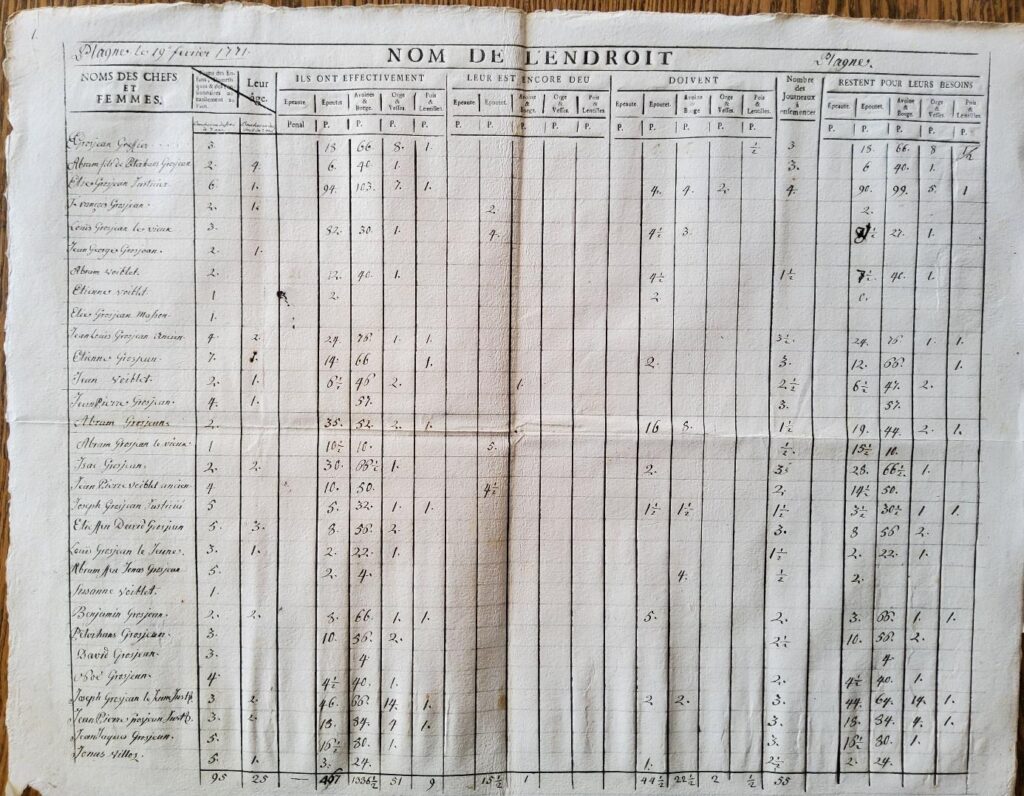 1.
Plagne le 19e fevrier 1771.
NOM DE L'ENDROIT
Plagne.
NOMS DES CHEFS ET FEMMES.
Leur âge.
ILS ONT EFFECTIVEMENT
LEUR EST ENCORE DEU
DOIVENT
Nombre de Journeaux à ensemencer
RESTENT POUR LEURS BESOINS
Epeaute. Epeautre. Avoine & Borge. Orge & Vesses. Pois & Lentilles.
Penal P. P. P. P.
Grosjean Greffier 3. 18 66 8. 1. ½ 3 18. 66. 8 ½
Abram fils de Peterhans Grosjean 2. 4. 6. 40. 1. 3. 6 40. 1.
Elie Grosjean Justicier 6 1. 94. 103. 7. 1. 4. 4. 2. 4. 90. 99. 5. 1
François Grosjean. 2. 1. 2. 2.
Louis Grosjean le vieux 3. 82. 30. 1. 4. 4½ 3. 27. 1.
Jean George Grosjean. 2. 1.
Abram Voiblet. 2. 12. 40. 1. 4½ 1½ 7½ 40. 1.
Etienne Voiblet 1 2. 2 0.
Elie Grosjean Masson 1.
Jean Louis Grosjean Ancien 4. 2. 24. 76 1. 1. 3½ 24. 76 1. 1.
Etienne Grosjean 7. 14. 66 1. 2. 3. 12. 66. 1.
Jean Voiblet. 2. 1. 6½ 46 2. 1. 2½ 6½ 47. 2.
Jean Pierre Grosjean. 4. 1. 57. 3. 57.
Abram Grosjean 2. 35. 52. 2. 1. 16 8. 1½ 19. 44. 2. 1.
Abram Grosjean le vieux 1 10½ 10. 5. ½ 15½ 10.
Isac Grosjean. 2. 2. 30. 66½ 1. 2. 3. 28. 66½ 1.
Jean Pierre Voiblet ancien 4. 10. 50. 4½ 2. 14½ 50.
Joseph Grosjean Justicié 5 5. 32. 1. 1. 1½ 1½ 1½ 3½ 30½ 1 1.
David Grosjean 5. 3. 8. 56. 2. 3. 8 56 2.
Louis Grosjean le Jeune. 3. 1. 2. 22. 1. 1½ 2. 22. 1.
Abram Jonas Grosjean 5. 2. 4. 4. ½ 2.
Susanne Voiblet. 1.
Benjamin Grosjean. 2. 2. 8. 66. 1. 1. 5. 2. 3. 66. 1. 1.
Peterhans Grosjean. 3. 10. 56. 2. 2½ 10. 56. 2.
David Grosjean. 3. 4 4.
Noé Grosjean. 4. 4½ 40. 1. 2. 4½ 40. 1.
Joseph Grosjean le Jeune Just. 3 2. 46. 66. 14. 1. 2 2. 3. 44. 64. 14. 1.
Jean Pierre Grosjean Just. 3. 2. 18. 34. 4 1. 3. 18. 34. 4. 1.
Jean Jaques Grosjean. 5. 16½ 30 1. 3. 16½ 30. 1.
Jonas Villoz 5. 1. 3. 24. 1. 2½ 2. 24.
95 25 — 1336½ 51 9 15½ 1 44½ 22½ 2 ½ 55